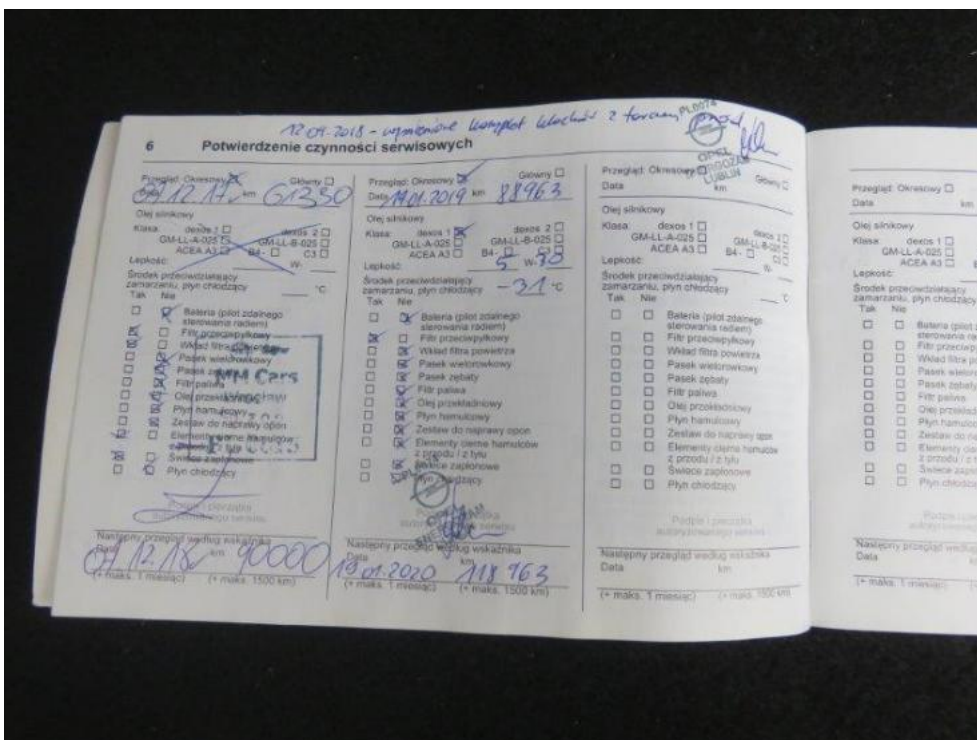 12.09.2018 - wymienione komplet klocków z tarczami przód
PL0074
OPEL
DROGOZAM
LUBLIN
6 Potwierdzenie czynności serwisowych
Przegląd: Okresowy Główny
Data 07.12.17 km 61330
Olej silnikowy
Klasa: dexos 1 dexos 2
GM-LL-A-025 GM-LL-B-025
ACEA A3 B4- C3
Lepkość: W-
Środek przeciwdziałający
zamarzaniu, płyn chłodzący °C
Tak Nie
Bateria (pilot zdalnego
sterowania radiem)
Filtr przeciwpyłkowy
Wkład filtra powietrza
Pasek wielorowkowy
Pasek zębaty
Filtr paliwa
Olej przekładniowy
Płyn hamulcowy
Zestaw do naprawy opon
Elementy cierne hamulców
z przodu / z tyłu
Świece zapłonowe
Płyn chłodzący
MM Cars
Podpis i pieczątka
autoryzowanego serwisu
Następny przegląd według wskaźnika
Data 07.12.18 km 90000
(+ maks. 1 miesiąc) (+ maks. 1500 km)
Przegląd: Okresowy Główny
Data 19.01.2019 km 88963
Olej silnikowy
Klasa: dexos 1 dexos 2
GM-LL-A-025 GM-LL-B-025
ACEA A3 B4- C3
Lepkość: 5 W- 30
Środek przeciwdziałający
zamarzaniu, płyn chłodzący -31 °C
Tak Nie
Bateria (pilot zdalnego
sterowania radiem)
Filtr przeciwpyłkowy
Wkład filtra powietrza
Pasek wielorowkowy
Pasek zębaty
Filtr paliwa
Olej przekładniowy
Płyn hamulcowy
Zestaw do naprawy opon
Elementy cierne hamulców
z przodu / z tyłu
Świece zapłonowe
Płyn chłodzący
Podpis i pieczątka
autoryzowanego serwisu
OPEL
Następny przegląd według wskaźnika
Data km
19.01.2020 118 963
(+ maks. 1 miesiąc) (+ maks. 1500 km)
Przegląd: Okresowy Główny
Data km
Olej silnikowy
Klasa: dexos 1 dexos 2
GM-LL-A-025 GM-LL-B-025
ACEA A3 B4- C3
Lepkość: W-
Środek przeciwdziałający
zamarzaniu, płyn chłodzący °C
Tak Nie
Bateria (pilot zdalnego
sterowania radiem)
Filtr przeciwpyłkowy
Wkład filtra powietrza
Pasek wielorowkowy
Pasek zębaty
Filtr paliwa
Olej przekładniowy
Płyn hamulcowy
Zestaw do naprawy opon
Elementy cierne hamulców
z przodu / z tyłu
Świece zapłonowe
Płyn chłodzący
Podpis i pieczątka
autoryzowanego serwisu
Następny przegląd według wskaźnika
Data km
(+ maks. 1 miesiąc) (+ maks. 1500 km)
Przegląd: Okresowy
Data km
Olej silnikowy
Klasa: dexos 1
GM-LL-A-025
ACEA A3
Lepkość:
Środek przeciwdziałający
zamarzaniu, płyn chłodzący
Tak Nie
Bateria (pilot
sterowania
Filtr
Wkład filtra
Pasek
Pasek
Filtr paliwa
Olej
Płyn
Zestaw do
Elementy
z przodu / z
Świece
Płyn
Podpis i
Następny przegląd według
Data km
(+ maks. 1 miesiąc)